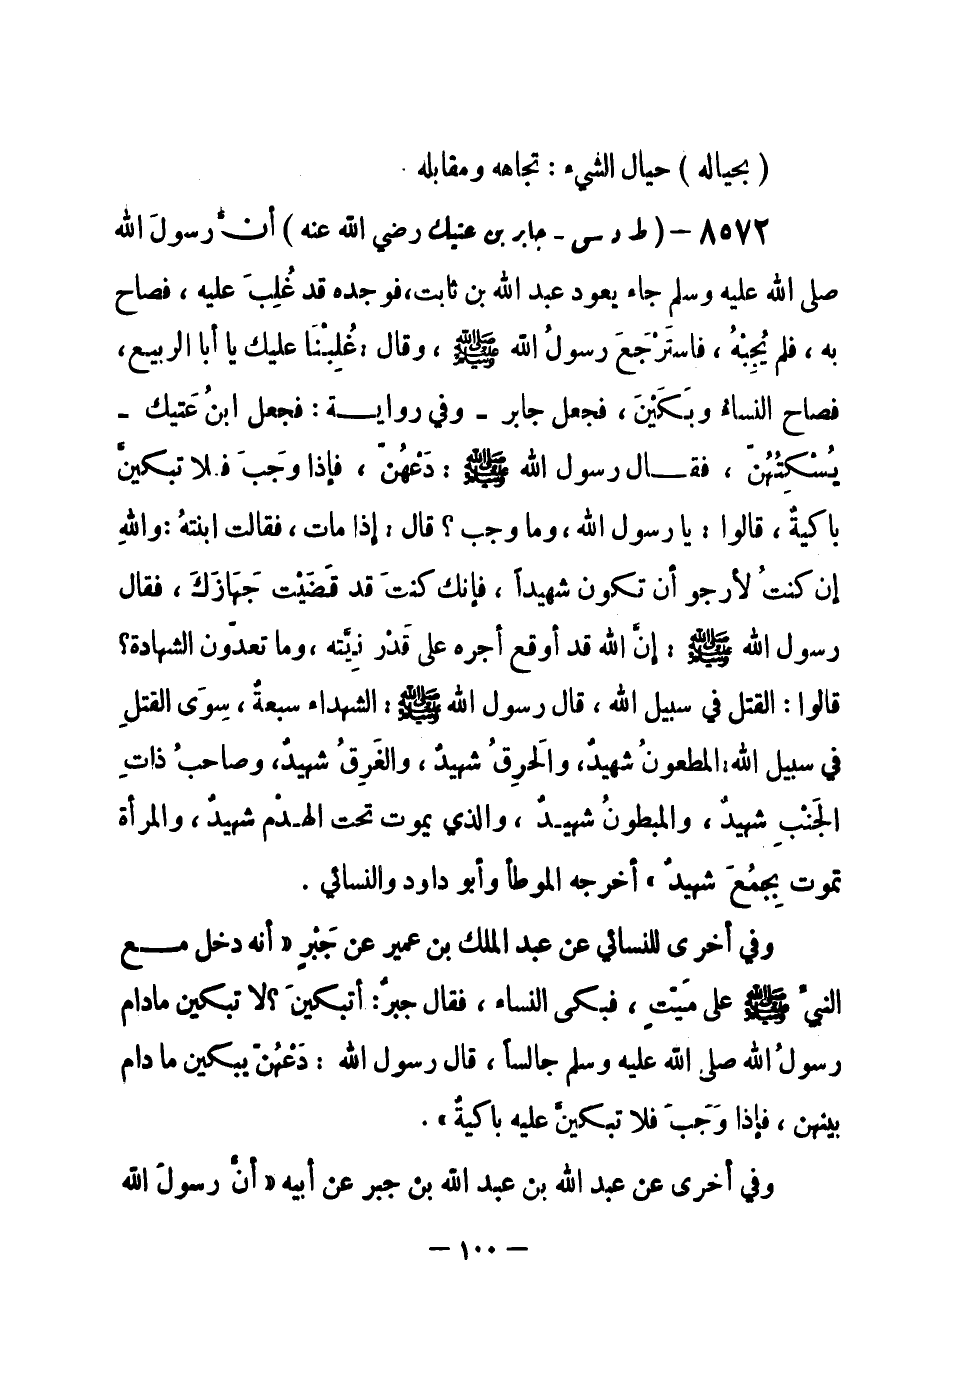 ( بحياله ) حيال الشيء : تجاهه ومقابله .
٨٥٧٢ – ( ط د س - جابر بن عتيك رضي الله عنه ) أنَّ رسولَ الله
صلى الله عليه وسلم جاء يعود عبد الله بن ثابت، فوجده قد غُلِبَ عليه ، فصاح
به ، فلم يُجِبْهُ ، فاستَرْجَعَ رسولُ الله ﷺ ، وقال : غُلِبْنَا عليك يا أبا الربيع،
فصاح النساءُ وبَكَيْنَ ، فجعل جابر - وفي رواية : فجعل ابنُ عَتيك -
يُسْكِتُهُنّ ، فقال رسول الله ﷺ : دَعْهُنّ ، فإذا وجَبَ فلا تبكينَّ
باكيةٌ ، قالوا : يا رسول الله ، وما وجب ؟ قال : إذا مات ، فقالت ابنتهُ : واللهِ
إن كنتُ لأرجو أن تكون شهيداً ، فإنك كنتَ قد قَضَيْت جَهَازَكَ ، فقال
رسول الله ﷺ : إنَّ الله قد أوقع أجره على قَدْر نِيَّته ، وما تعدّون الشهادة؟
قالوا : القتل في سبيل الله ، قال رسول الله ﷺ : الشهداء سبعةٌ ، سِوَى القتلِ
في سبيل الله : المطعونُ شهيدٌ، والحَرِقُ شهيدٌ ، والغَرِقُ شهيدٌ، وصاحبُ ذاتِ
الجَنْبِ شهيدٌ ، والمبطونُ شهيدٌ ، والذي يموت تحت الهدْم شهيدٌ ، والمرأة
تموت بِجمُعَ شهيدٌ » أخرجه الموطأ وأبو داود والنسائي .
وفي أخرى للنسائي عن عبد الملك بن عمير عن جَبْرٍ « أنه دخل مع
النبيِّ ﷺ على مَيّتٍ ، فبكى النساء ، فقال جبرٌ : أتبكينَ ؟ لا تبكين مادام
رسولُ الله صلى الله عليه وسلم جالساً ، قال رسول الله : دَعْهُنّ يبكين ما دام
بينهن ، فإذا وَجَبَ فلا تبكينَّ عليه باكيةٌ » .
وفي أخرى عن عبد الله بن عبد الله بن جبر عن أبيه « أنَّ رسولَ الله
– ١٠٠ –